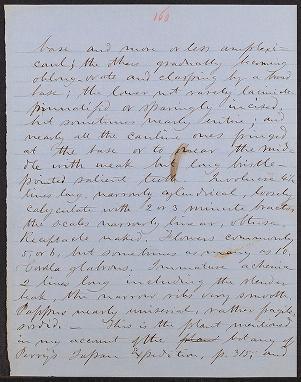 160
base and more or less amplexi-
caul; the others gradually becoming
oblong-ovate and clasping by a broad
base; the lower not rarely laciniate
pinnatifid or sparingly incised,
but sometimes nearly entire; and
nearly all the cauline ones fringed
at the base or to near the mid-
dle with weak but long bristle-
pointed salient teeth. Involucre 4
lines long, narrowly cylindrical, loosely
calyculate with 2 or 3 minute bracts,
the scales narrowly linear, obtuse.
Receptacle naked. Flowers commonly
5, or 6, but sometimes as many as 10.
Corolla glabrous. Immature achenia
2 lines long including the slender
beak, the narrow ribs very smooth.
Pappus nearly uniserial, rather fragile,
sordid. — This is the plant mentioned
in my account of the botany of
Perry's Japan Expedition, p. 315, and